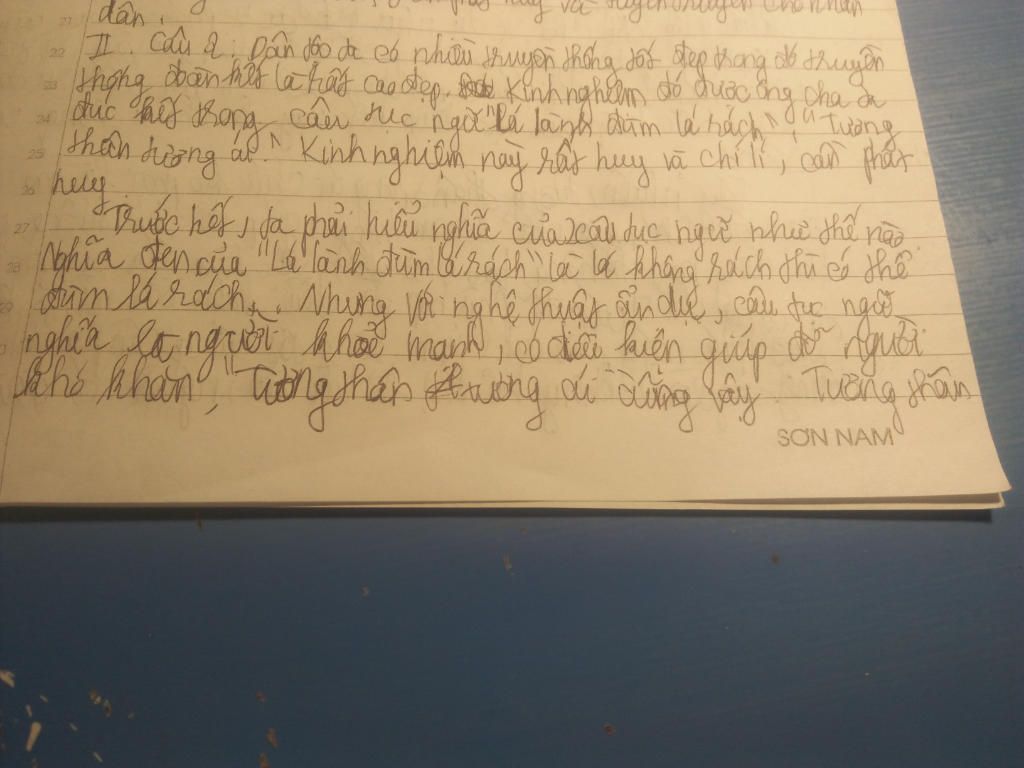 dân.
22 II. Câu 2: Dân tộc ta có nhiều truyền thống tốt đẹp trong đó truyền
23 thống đoàn kết là rất cao đẹp. Kinh nghiệm đó được ông cha ta
24 đúc kết trong câu tục ngữ "Lá lành đùm lá rách", "Tương
25 thân tương ái." Kinh nghiệm này rất huy và chí lí, cần phát
26 huy.
27 Trước hết, ta phải hiểu nghĩa của 2 câu tục ngữ như thế nào.
28 Nghĩa đen của "Lá lành đùm lá rách" là lá không rách thì có thể
29 đùm lá rách. Nhưng với nghệ thuật ẩn dụ, câu tục ngữ
nghĩa là người khoẻ mạnh, có điều kiện giúp đỡ người
khó khăn, "Tương thân tương ái" cũng vậy. Tương thân
SƠN NAM